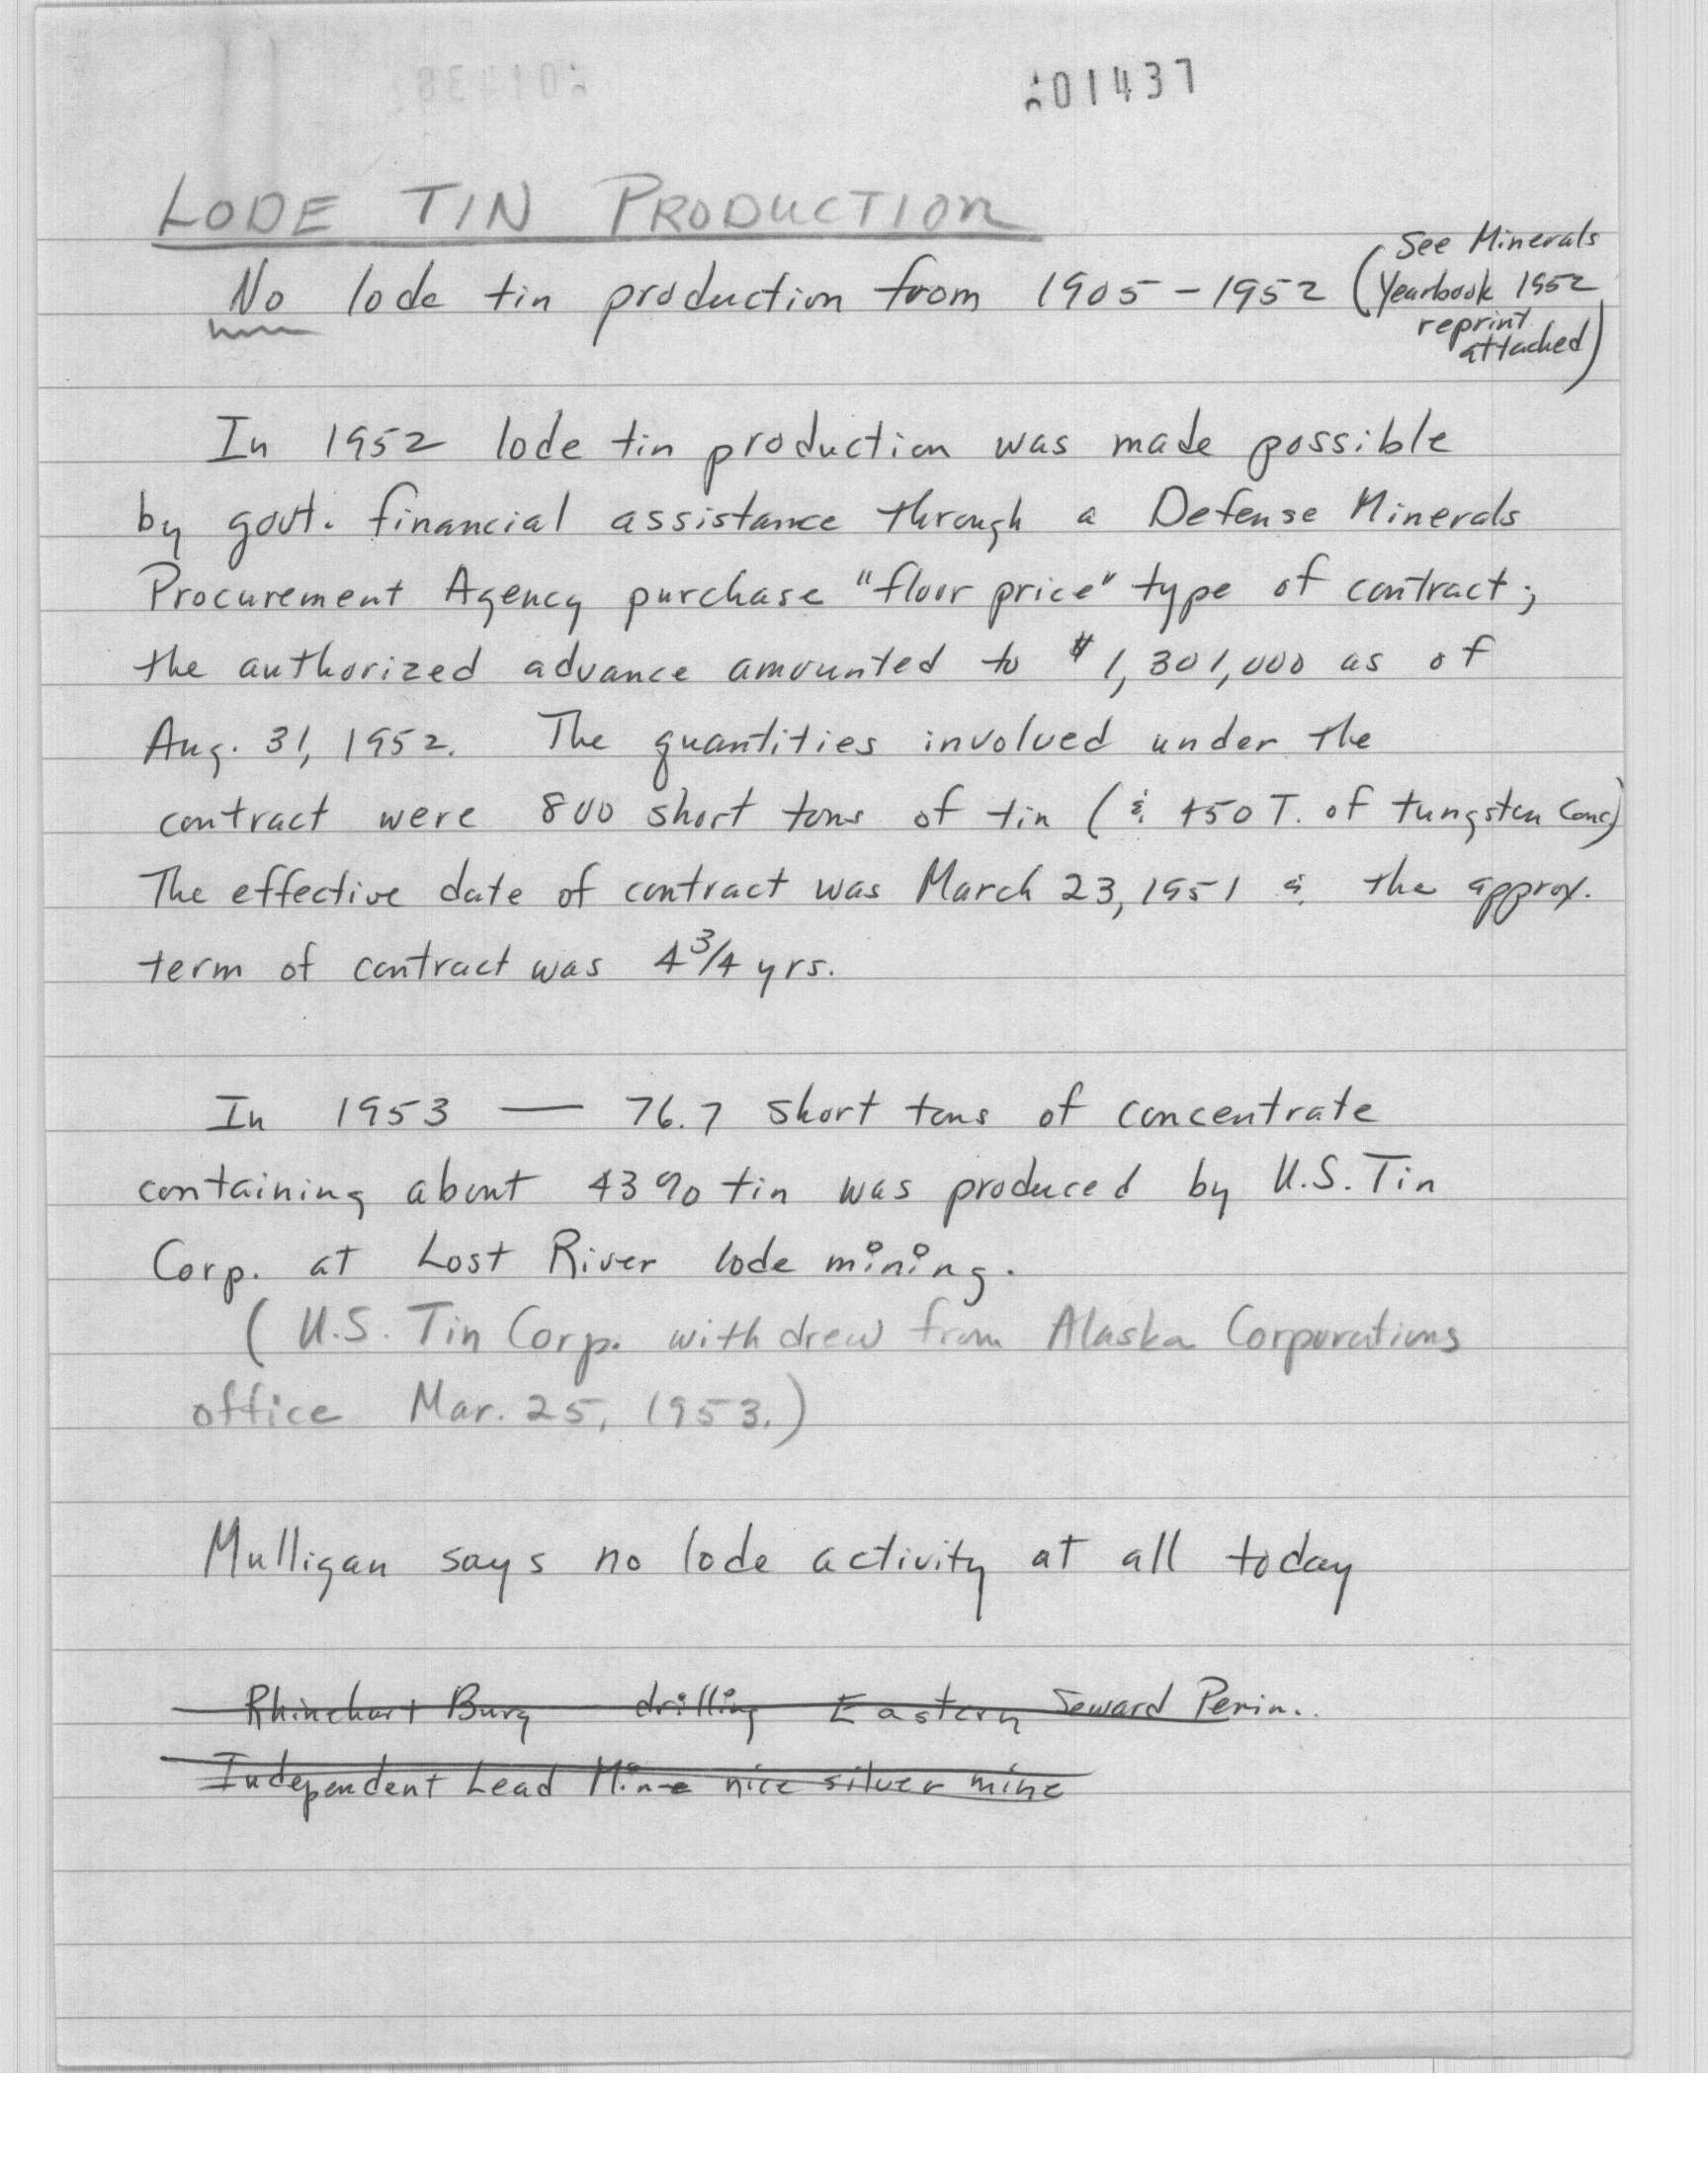 201437
LODE TIN PRODUCTION
No lode tin production from 1905-1952 (See Minerals
Yearbook 1952
reprint
attached)
In 1952 lode tin production was made possible
by govt. financial assistance through a Defense Minerals
Procurement Agency purchase "floor price" type of contract;
the authorized advance amounted to $1,301,000 as of
Aug. 31, 1952. The quantities involved under the
contract were 800 short tons of tin (& 450 T. of tungsten conc)
The effective date of contract was March 23, 1951 & the approx.
term of contract was 4 3/4 yrs.
In 1953 — 76.7 short tons of concentrate
containing about 43% tin was produced by U.S. Tin
Corp. at Lost River lode mining.
(U.S. Tin Corp. withdrew from Alaska Corporations
office Mar. 25, 1953.)
Mulligan says no lode activity at all today
Rhinehart Burg drilling Eastern Seward Penin.
Independent Lead Mine nice silver mine